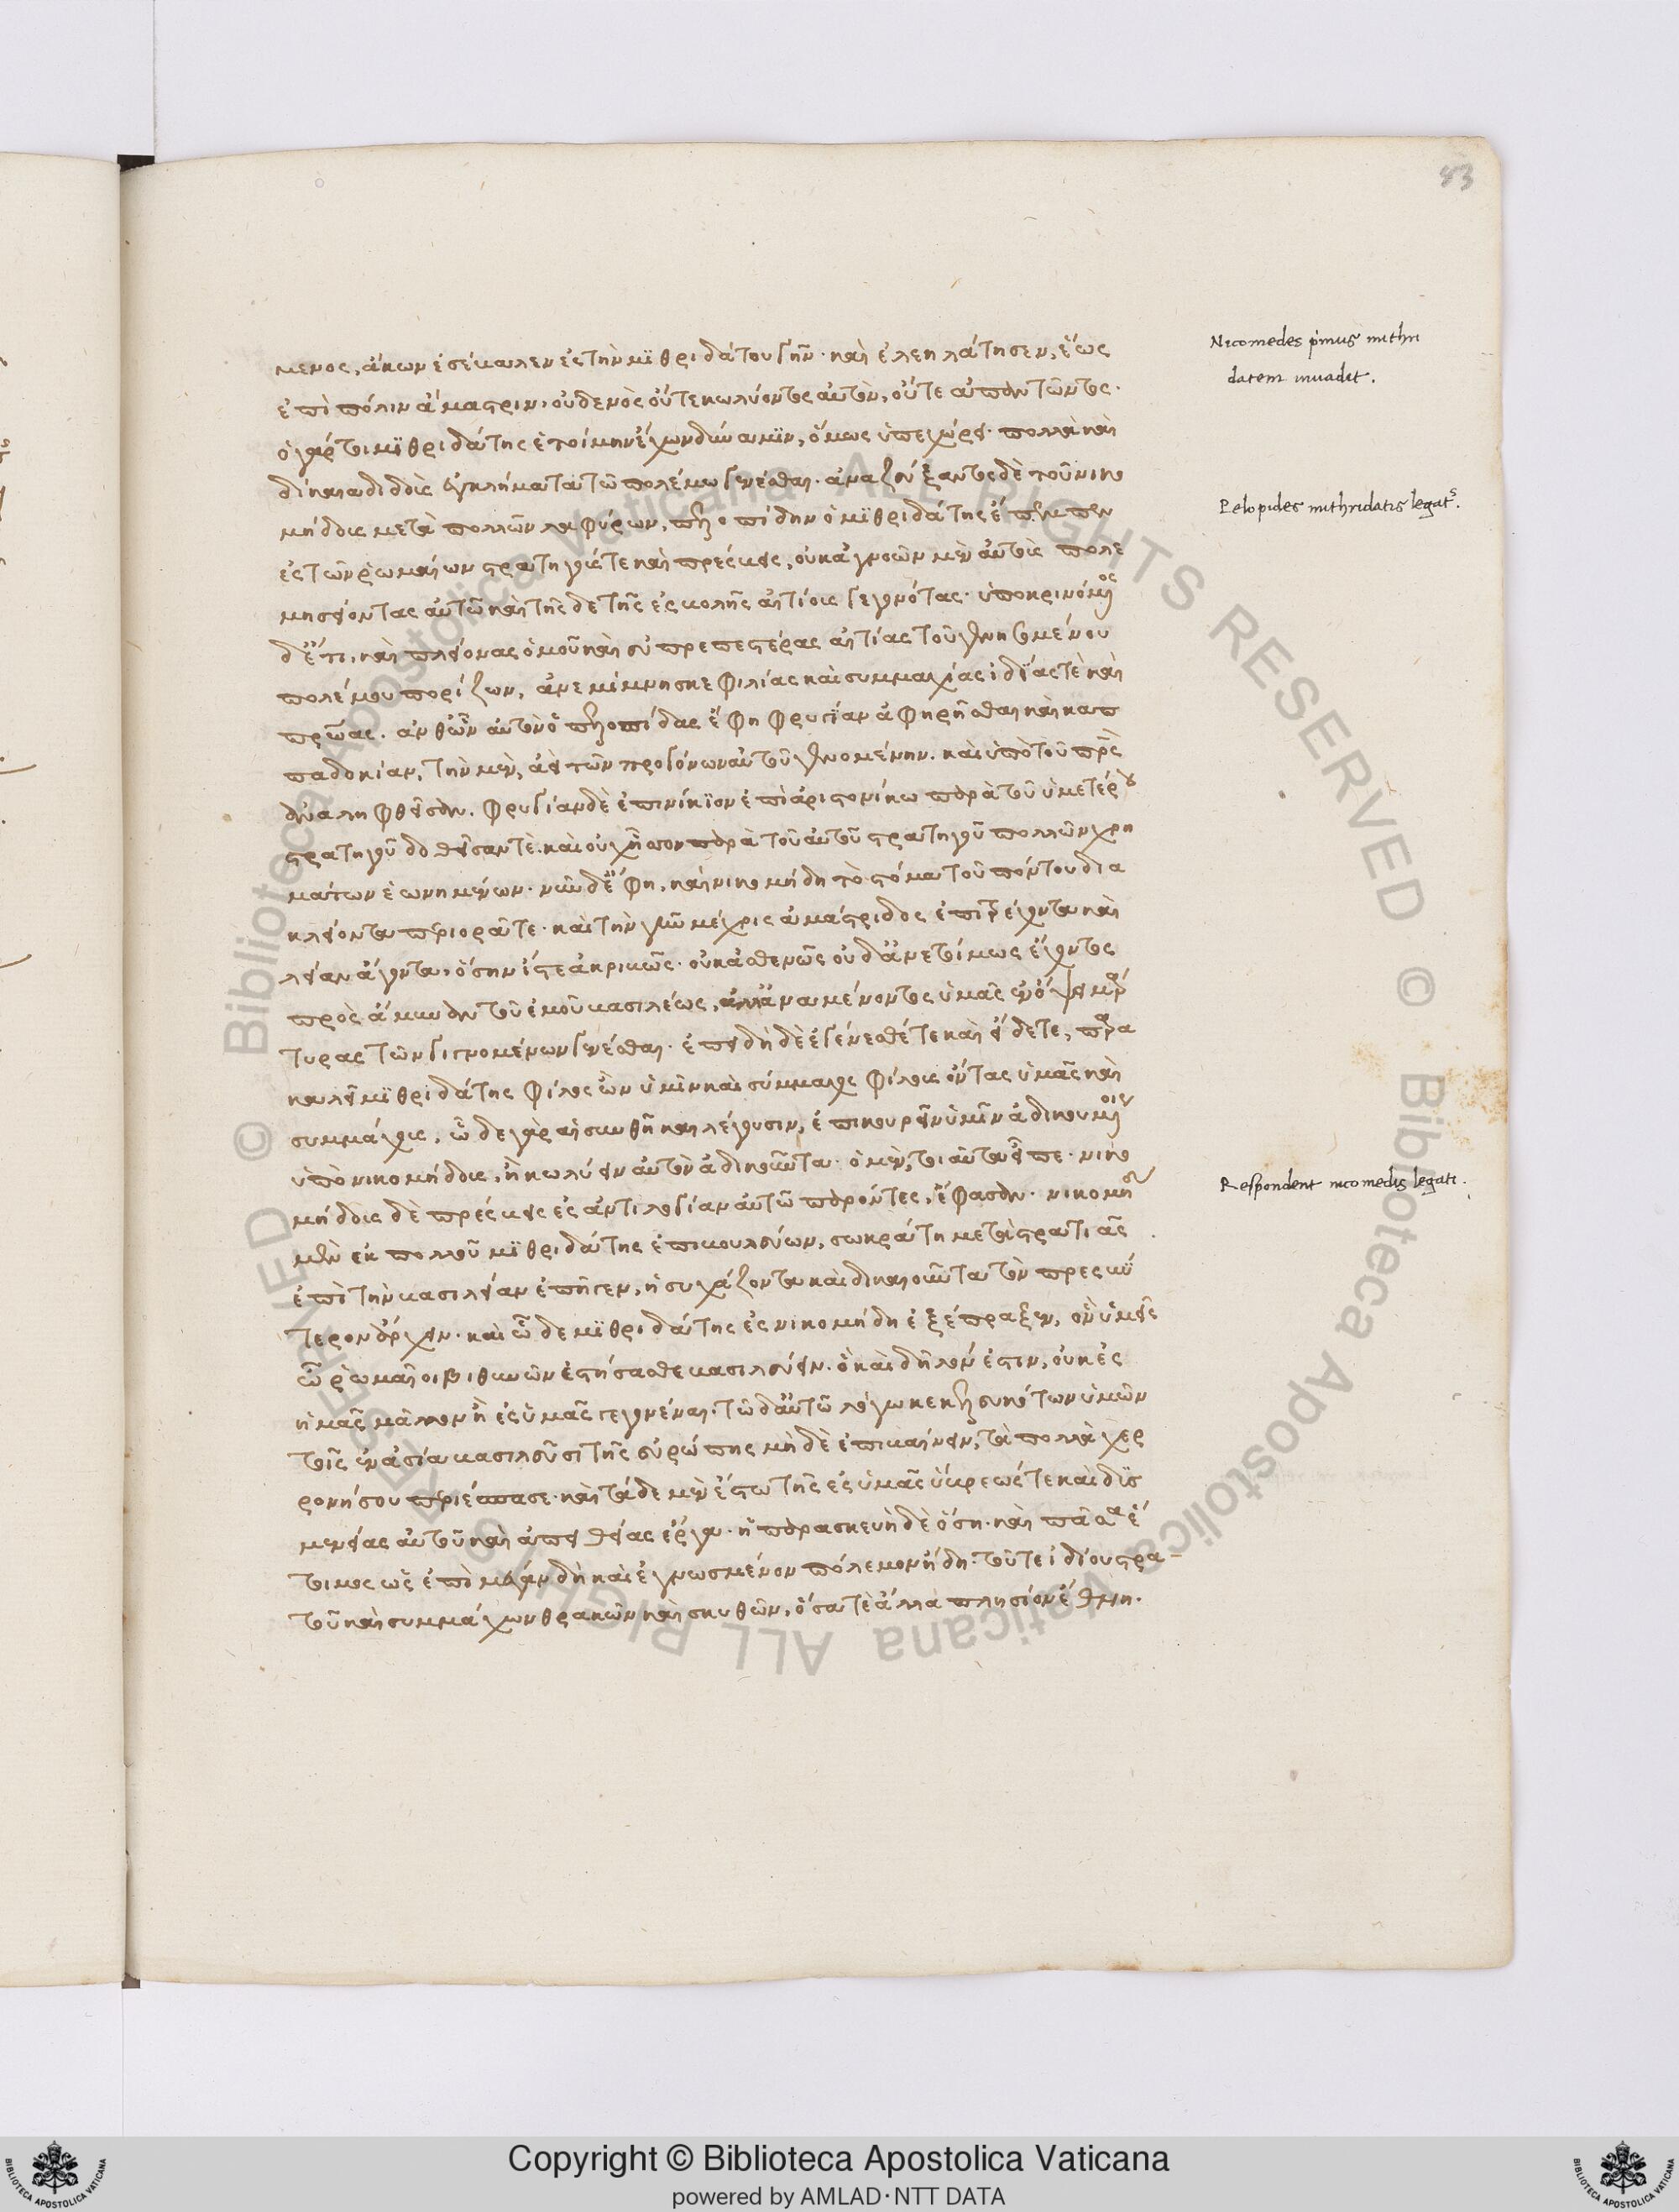 43
μενος, ἄκων ἐσέβαλεν ἐς τὴν μϊθριδάτου γῆν· καὶ ἐλεηλάτησεν, ἕως
ἐπὶ πόλιν ἄμαστριν· οὐδενὸς οὔτε κωλύοντος αὐτὸν, οὔτε ἀπαντῶντος·
ὁ γάρ τοι μϊθριδάτης ἑτοίμην ἔχων δύναμιν, ὅμως ὑπεχώρει· πολλὰ καὶ
δίκαια διδοὺς ἐγκλήματα τῶ πολέμω γενέσθαι· ἀναζεύξαντος δὲ τοῦ νικο
μήδους μετὰ πολλῶν λαφύρων, πελοπίδην ὁ μϊθριδάτης ἔπεμπεν
ἐς τῶν ῥωμαίων στρατηγούς τε καὶ πρέσβεις, οὐκ ἀγνοῶν μὲν αὐτοὺς πολε
μησείοντας αὐτῶ καὶ τῆς δε τῆς ἐσβολῆς αἰτίους γεγονότας· ὑποκρινόμενος
δ' ἔτι, καὶ πλείονας ὁμοῦ καὶ εὐπρεπεστέρας αἰτίας τοῦ γενησομένου
πολέμου πορίζων, ἀνεμίμνησκε φιλίας καὶ συμμαχίας ἰδίας τὲ καὶ
πατρώας. ἀνθ' ὧν αὐτὸν ὁ πελοπίδας ἔφη φρυγίαν ἀφηρῆσθαι καὶ καπ
παδοκίαν, τὴν μὲν, ἀεὶ τῶν προγόνων αὐτοῦ γενομένην. καὶ ὑπὸ τοῦ πατρὸς
ἀναληφθεῖσαν. φρυγίαν δὲ ἐπινίκϊον ἐπὶ ἀριστονίκω παρὰ τοῦ ὑμετέρου
στρατηγοῦ δοθεῖσαν τὲ. καὶ οὐχ ἧσσον παρὰ τοῦ αὐτοῦ στρατηγοῦ πολλῶν χρη
μάτων ἐωνημένων· νῦν δ' ἔφη, καὶ νικομήδη τὸ στόμα τοῦ πόντου δια
κλείοντα περιορᾶτε· καὶ τὴν γῆν μέχρις ἀμάστριδος ἐπιτρέχοντα καὶ
λείαν ἄγοντα, ὅσην ἴστε ἀκριβῶς· οὐκ ἀσθενῶς οὐδ' ἀνετοίμως ἔχοντος
πρὸς ἄμυναν τοῦ ἐμοῦ βασιλέως, ἀλλ' ἀναμένοντος ὑμᾶς ἐν ὄψει μάρ
τυρας τῶν γιγνομένων γενέσθαι· ἐπειδὴ δὲ ἐγένεσθέ τε καὶ εἴδετε, παρα
καλεῖ μϊθριδάτης φίλος ὢν ὑμῖν καὶ σύμμαχος φίλους ὄντας ὑμᾶς καὶ
συμμάχους, ὧδε γὰρ αἱ συνθῆκαι λέγουσιν, ἐπικουρεῖν ὑμῖν ἀδικουμένοις
ὑπὸ νικομήδους, ἢ κωλύειν αὐτὸν ἀδικοῦντα· ὁ μὲν, τοιαῦτα εἶπε· νικο
μήδους δὲ πρέσβεις ἐς ἀντιλογίαν αὐτῶ παρόντες, ἔφασαν· νικομήδει
μὲν ἐκ πολλοῦ μϊθριδάτης ἐπιβουλεύων, σωκράτη μετὰ στρατιᾶς
ἐπὶ τὴν βασιλείαν ἐπῆγεν, ἡσυχάζοντα καὶ δικαιοῦντα τὸν πρεσβύ
τερον ἄρχειν· καὶ ὧδε μϊθριδάτης ἐς νικομήδη ἐξέπραξεν, ὃν ὑμεῖς
ὦ ῥωμαῖοι βιθυνῶν ἐστήσασθε βασιλεύειν. ὃ καὶ δῆλόν ἐστιν, οὐκ ἐς
ἡμᾶς μᾶλλον ἢ ἐς ὑμᾶς γεγονέναι· τῶ δ' αὐτῶ λόγω κεκελευκότων ὑμῶν
τοῖς ἐν ἀσία βασιλεῦσι τῆς εὐρώπης μὴ δὲ ἐπιβαίνειν, τὰ πολλὰ χερ
ρονήσου περιέσπασε· καὶ τάδε μὲν ἔστω τῆς ἐς ὑμᾶς ὕβρεώς τε καὶ δυσ
μενείας αὐτοῦ καὶ ἀπειθείας ἔργα· ἡ παρασκευὴ δὲ ὅση· καὶ πᾶσα ἕ
τοιμος ὡς ἐπὶ μέγαν δὴ καὶ ἐγνωσμένον πόλεμον ἤδη· τοῦ τε ἰδίου στρα-
τοῦ καὶ συμμάχων θρακῶν καὶ σκυθῶν, ὅσα τὲ ἄλλα πλησίον ἔθνη.
Nicomedes primus mithri
datem inuadit.
Pelopides mithridatis legatus.
Respondent nicomedis legati.
Copyright © Biblioteca Apostolica Vaticana
powered by AMLAD·NTT DATA
© Biblioteca Apostolica Vaticana ALL RIGHTS RESERVED © Biblioteca Apostolica Vaticana ALL RIGHTS RESERVED
BIBLIOTECA APOSTOLICA VATICANA
BIBLIOTECA APOSTOLICA VATICANA